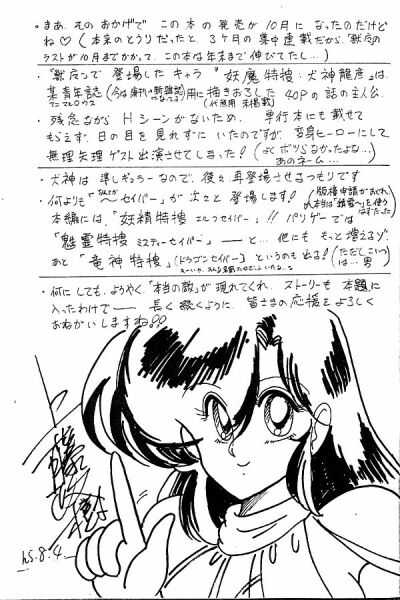 ・まあ、そのおかげで この本の発売が10月に なったのだけどね♡ (本来のとうりだったと、3ヶ月の集中連載だから、
ラストが10月までかかって、この本は年末まで伸びてたし…)
登場したキャラ "妖魔特捜・犬神龍彦"は、
某青年誌 用に描きおろした 40Pの話の主人公。
(代原用 未掲載)
・残念ながら Hシーンがないため、単行本にも載せて
もらえず、日の目を見れずにいたのですが、変身ヒーローにして
無理矢理ゲスト出演させてしまった! (よくボツらなかったよな…
あのネーム…)
・犬神は準レギュラーなので、後々再登場させるつもりです
・何よりも "〜セイバー" が次々と登場します!
本編には、"妖精特捜 エルフセイバー"!! パリゲーでは
「魅霊特捜 ミスティーセイバー」 ――と… 他にも もっと増えるゾ。
あと「竜神特捜」(ドラゴンセイバー) というのも出る! (ただしこいつは…男)
・何にしても、ようやく「本当の敵」が現れてくれ、ストーリーも 本題に
入ったわけで―― 長く続くように、皆さまの応援をよろしく
おねがいしますね!!
h5.8.4